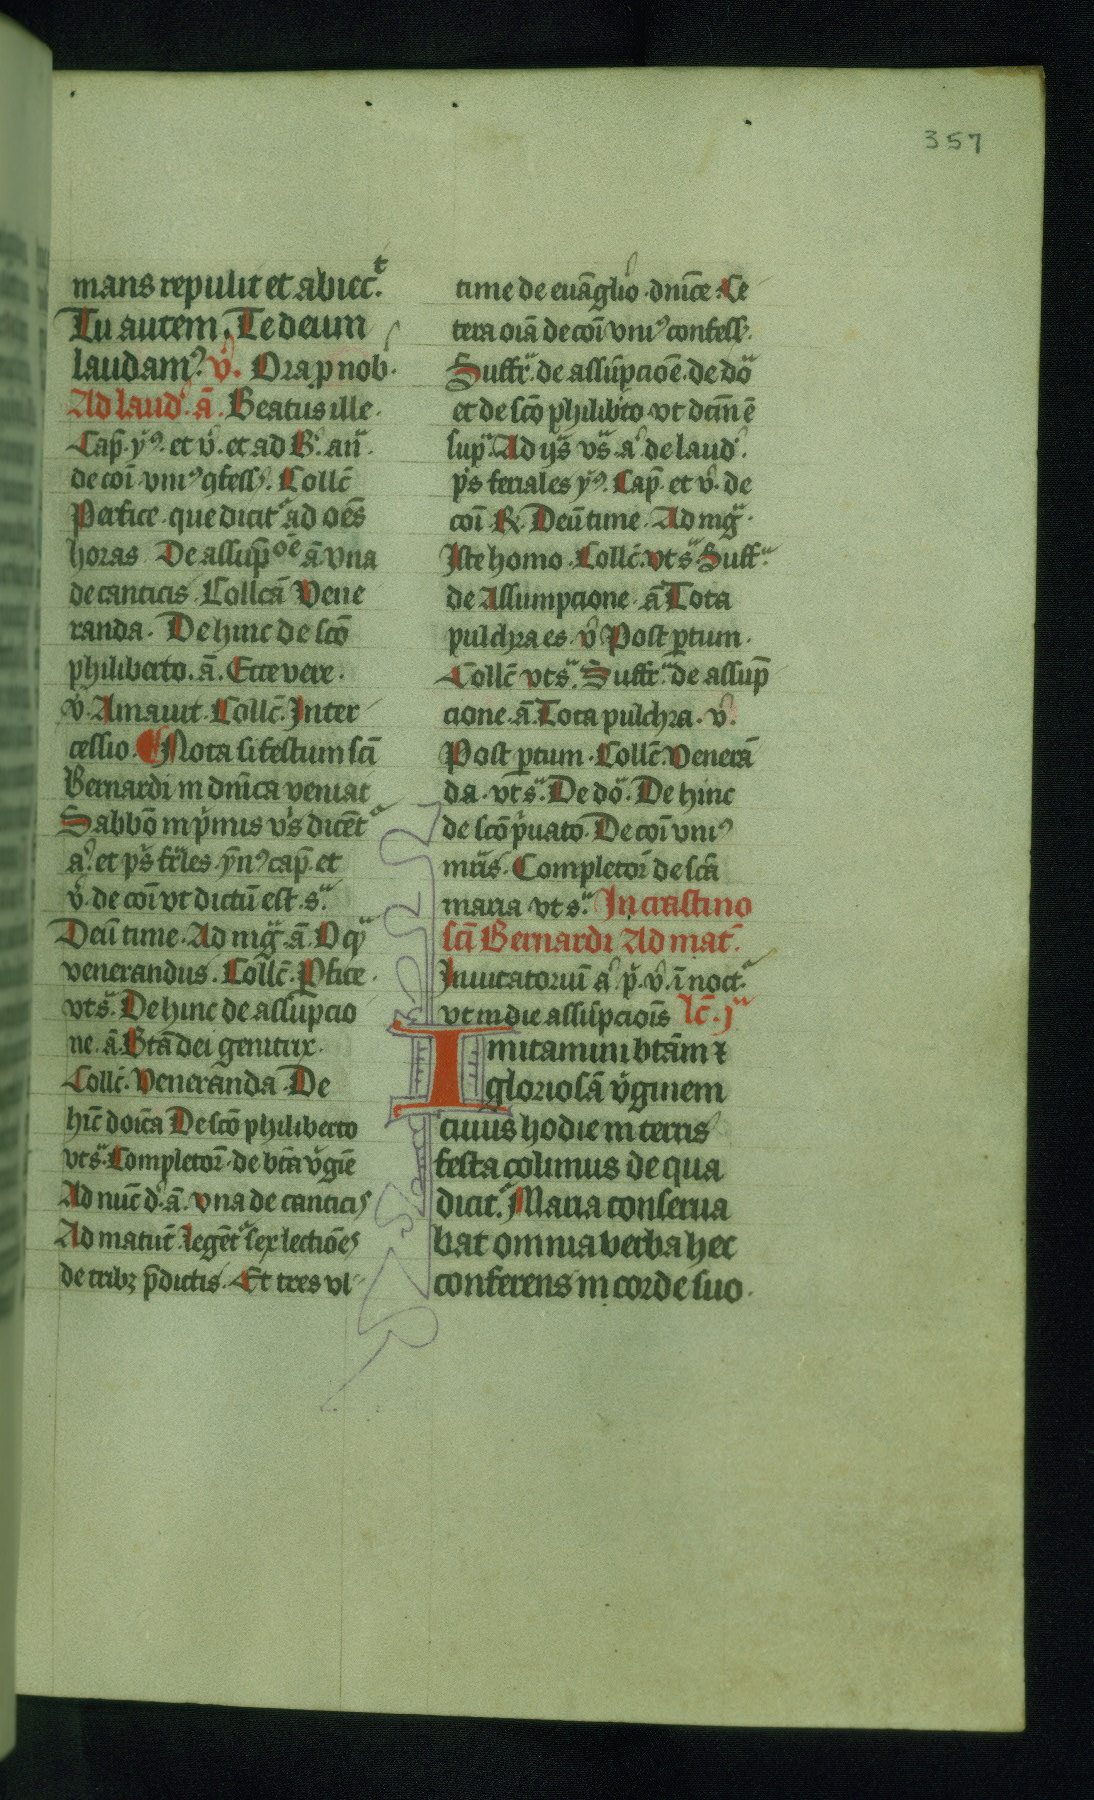 357
mans repulit et abiecᵗ.
Tu autem. Te deum
laudamꝰ. v̾. Ora p nob.
Ad laud̾. ā. Beatus ille.
Cap̄. ẏꝰ. et v̾. et ad B̾. añ.
de coī vniꝰ ꝯfess̾. Collc̄
Perfice. que dicit᷑ ad oēs
horas. De assūp̄oē ā vna
de canticis. Collcā Vene
randa. De hinc de scō
philiberto. ā. Ecce vere.
v̾. Amauit. Collc̄. Inter
cessio. Nota si festum scī
Bernardi in dnīca veniat
Sabbō in pⁱmis v̾s dicēt᷑
a̾. et p̾s fr̄les. ẏnꝰ cap̄. et
v̾. de coī vt dictū est. sᵃ.
Deū time. Ad mgᷓ. ā. O qᷓ
venerandus. Collc̄. Pfice.
vtsᷓ. De hinc de assūpcio
ne. ā. Btā dei genitrix.
Collc̄. Veneranda. De
hīc doīca De scō philiberto
vtsᷓ. Completor̄. de btā v̾gīe
Ad nūc d̾. ā. vna de canticis
Ad matut̄. legēt᷑ sex lectiōes
de tribꝫ p̄dictis. Et tres vl
time de euāglio̾. dnīce. Ce
tera oīā de coī vniꝰ confess̾.
Suffrᷓ. de assūpcioē. de dōᷓ
et de scō philibto. vt dc̄m ē
supᷓ. Ad ijᷓs vᷓs. a̾ de laud̾.
p̾s feriales ẏꝰ. Cap̄. et v̾. de
coī. R̸. Deū time. Ad mgᷓ.
Iste homo. Collc̄. vt sᷓ. Suffᷓ.
de Assumpcione. ā Tota
pulchra es. v̾ Post ꝑtum.
Collc̄ vtsᷓ. Suffrᷓ. de assup̄
cione. ā. Tota pulchra. v̾.
Post ꝑtum. Collc̄. Venerā
da. vtsᷓ. De dōᷓ. De hinc
de scō pⁱuato. De coī vniꝰ
mr̄is. Completor̄ de scā
maria vt sᷓ. In crastino
scī Bernardi Ad mat̄.
Inuitatoriū a̾ p̾. v̾. ī noct᷑.
vt in die assūpcioīs lc̄. jᵃ
Imitamini btām ⁊
gloriosā v̾ginem
cuius hodie in terris
festa colimus de qua
dicit᷑. Maria conserua
bat omnia verba hec
conferens in corde suo.